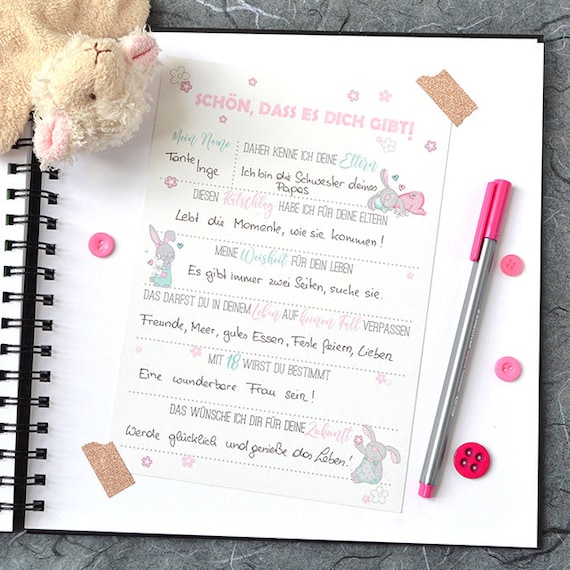 SCHÖN, DASS ES DICH GIBT!
Mein Name
Tante Inge
DAHER KENNE ICH DEINE Eltern
Ich bin die Schwester deines
Papas
DIESEN Ratschlag HABE ICH FÜR DEINE ELTERN
Lebt die Momente, wie sie kommen!
MEINE Weisheit FÜR DEIN LEBEN
Es gibt immer zwei Seiten, suche sie.
DAS DARFST DU IN DEINEM Leben AUF keinen Fall VERPASSEN
Freunde, Meer, gutes Essen, Feste feiern, Lieben
MIT 18 WIRST DU BESTIMMT
Eine wunderbare Frau sein!
DAS WÜNSCHE ICH DIR FÜR DEINE Zukunft
Werde glücklich und genieße das Leben!